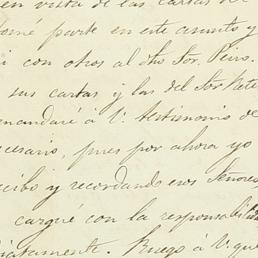 en vista de las cartas de
tomé parte en este asunto y
i con otros al dho Sor. Peiro.
sus cartas y las del Sor
mandaré á V. testimonio de
cesario, pues por ahora yo
cibo y recordando esos Señores,
cargué con la responsabilidad
diatamente. Ruego á V. que